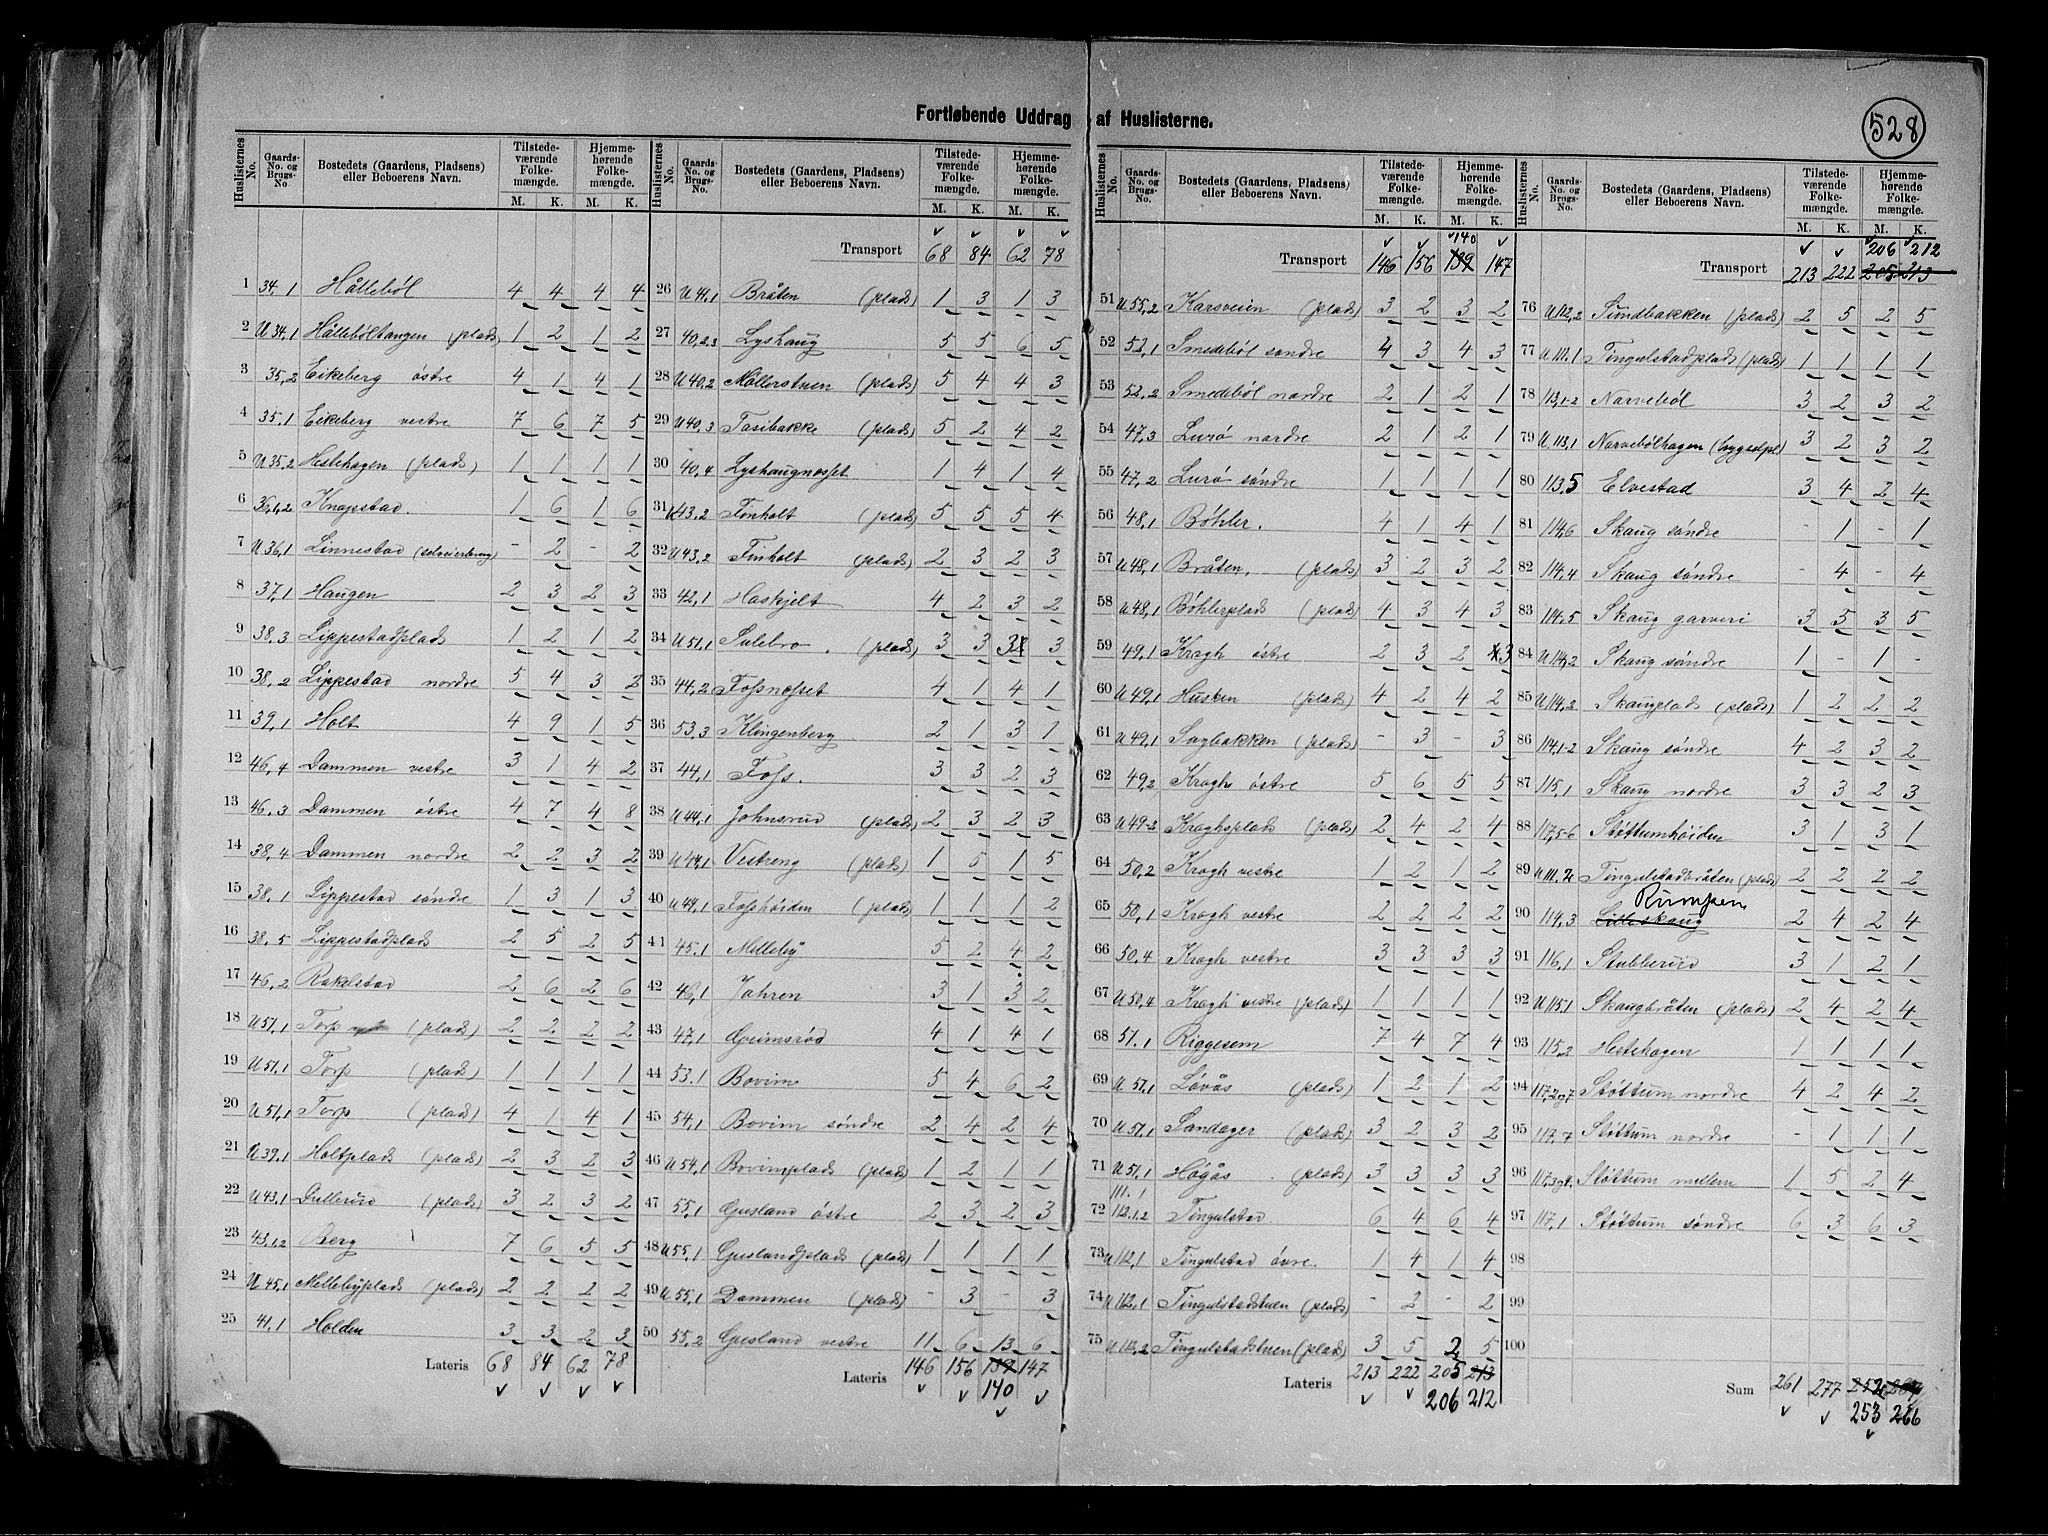 Fortløbende Uddrag af Huslisterne.
528
Huslisternes No. Gaards-No. og Brugs-No. Bostedets (Gaardens, Pladsens) eller Beboerens Navn. Tilstedeværende Folkemængde. M. K. Hjemmehørende Folkemængde. M. K.
1 34,1 Hållebøl 4 4 4 4
2 U 34,1 Hålleböltangen (plads) 1 2 1 2
3 35,2 Eikeberg östre 4 1 4 1
4 35,1 Eikeberg vestre 7 6 7 5
5 U 35,2 Hestehagen (plads) 1 1 1 1
6 36,1,2 Knapstad. 1 6 1 6
7 U 36,1 Linnestad - 2 - 2
8 37,1 Haugen 2 3 2 3
9 38,3 Lippestadplads 1 2 1 2
10 38,2 Lippestad nordre 5 4 3 2
11 39,1 Holt 4 9 1 5
12 46,4 Dammen vestre 3 1 4 2
13 46,3 Dammen östre 4 7 4 8
14 38,4 Dammen nordre 2 2 3 2
15 38,1 Lippestad søndre 1 3 1 3
16 38,5 Lippestadplads 2 5 2 5
17 46,2 Rakelstad 2 6 2 6
18 U 51,1 Torp (plads) 2 2 2 2
19 U 51,1 Torp (plads) 1 1 1 1
20 U 51,1 Torp (plads) 4 1 4 1
21 U 39,1 Holtplads (plads) 2 3 2 3
22 U 43,1 Dullerud (plads) 3 2 3 2
23 43,1,2 Berg 7 6 5 5
24 U 45,1 Mellebyplads (plads) 2 2 2 2
25 41,1 Holden 3 3 2 3
Lateris 68 84 62 78
Transport 68 84 62 78
26 U 41,1 Bråten (plads) 1 3 1 3
27 40,2,3 Lyshaug 5 5 6 5
28 U 40,2 Møllerstuen (plads) 5 4 4 3
29 U 40,3 Tasibakke (plads) 5 2 4 2
30 40,4 Lyshaugnesset 1 4 1 4
31 U 43,2 Finholt (plads) 5 5 5 4
32 U 43,2 Finholt (plads) 2 3 2 3
33 42,1 Haskjelt 4 2 3 2
34 U 51,1 Sulebro. (plads) 3 3 3 3
35 44,2 Fossnesset 4 1 4 1
36 53,3 Klingenberg 2 1 3 1
37 44,1 Foss. 3 3 2 3
38 U 44,1 Johnsrud (plads) 2 3 2 3
39 U 44,1 Vestreng (plads) 1 5 1 5
40 U 44,1 Fosshöiden (plads) 1 1 1 2
41 45,1 Melleby 5 2 4 2
42 46,1 Jahren 3 1 3 2
43 47,1 Grimsrød 4 1 4 1
44 53,1 Bovim 5 4 6 2
45 54,1 Bovim søndre 2 4 2 4
46 U 54,1 Bovimplads (plads) 1 2 1 1
47 55,1 Gusland östre 2 3 2 3
48 U 55,1 Guslandplads (plads) 1 1 1 1
49 U 55,1 Dammen (plads) - 3 - 3
50 55,2 Gusland vestre 11 6 13 6
Lateris 146 156 139 147
140
Transport 146 156 139 147
140
51 U 55,2 Karsveien (plads) 3 2 3 2
52 52,1 Smedebøl søndre 4 3 4 3
53 52,2 Smedebøl nordre 2 1 2 1
54 47,3 Lurø nordre 2 1 2 1
55 47,2 Lurø søndre 1 1 1 1
56 48,1 Böhler. 4 1 4 1
57 U 48,1 Bråten. (plads) 3 2 3 2
58 U 48,1 Böhlerplads (plads) 4 3 4 3
59 49,1 Kragh östre 2 3 2 3
60 U 49,1 Husken (plads) 4 2 4 2
61 U 49,1 Sagbakken (plads) - 3 - 3
62 49,2 Kragh östre 5 6 5 5
63 U 49-2 Kraghsplads (plads) 2 4 2 4
64 50,2 Kragh vestre 1 2 1 2
65 50,1 Kragh vestre 2 2 2 2
66 50,4 Kragh vestre 3 3 3 3
67 U 50,4 Kragh vestre (plads) 1 1 1 1
68 51,1 Riggesem 7 4 7 4
69 U 51,1 Løvås (plads) 1 2 1 2
70 U 51,1 Sandager (plads) 3 2 3 2
71 U 51,1 Högås (plads) 3 3 3 3
72 111.1 112,1,2 Tingulstad 6 4 6 4
73 U 112,1 Tingulstad övre. 1 4 1 4
74 U 112,1 Tingulstadstuen (plads) - 2 - 2
75 U 112,2 Tingulstadstuen (plads) 3 5 2 5
Lateris 213 222 205 213
206 212
Transport 213 222 205 213
206 212
76 U 112,2 Sundbakken (plads) 2 5 2 5
77 U 111,1 Tingulstadplads (plads) 1 1 1 1
78 113,1-2 Narvebøl 3 2 3 2
79 U 113,1 Narvebølhagen 3 2 3 2
80 113,5 Elvestad 3 4 2 4
81 114,6 Skaug søndre - 1 - 1
82 114,4 Skaug søndre - 4 - 4
83 114,5 Skaug garveri 3 5 3 5
84 U 114,2 Skaug søndre 1 - 1 -
85 U 114,2 Skaugplads (plads) 1 2 2 2
86 114,1-2 Skaug søndre 4 2 3 2
87 115,1 Skaug nordre 3 3 2 3
88 117,5-6 Støttumhöiden 3 1 3 1
89 U 111,2 Tingulstadbråten (plads) 2 2 2 2
Rumpen
90 114,3 Lilleskaug 2 4 2 4
91 116,1 Stubberud 3 1 2 1
92 U 115,1 Skaugbråten (plads) 2 4 2 4
93 115,2 Hestehagen 1 1 1 1
94 117,2og7 Støttum nordre 4 2 4 2
95 117,7 Støttum nordre - 1 1 1
96 117,3og4. Støttum mellem 1 5 2 4
97 117,1 Støttum søndre 6 3 6 3
98
99
100
Sum 261 277 252
253 266